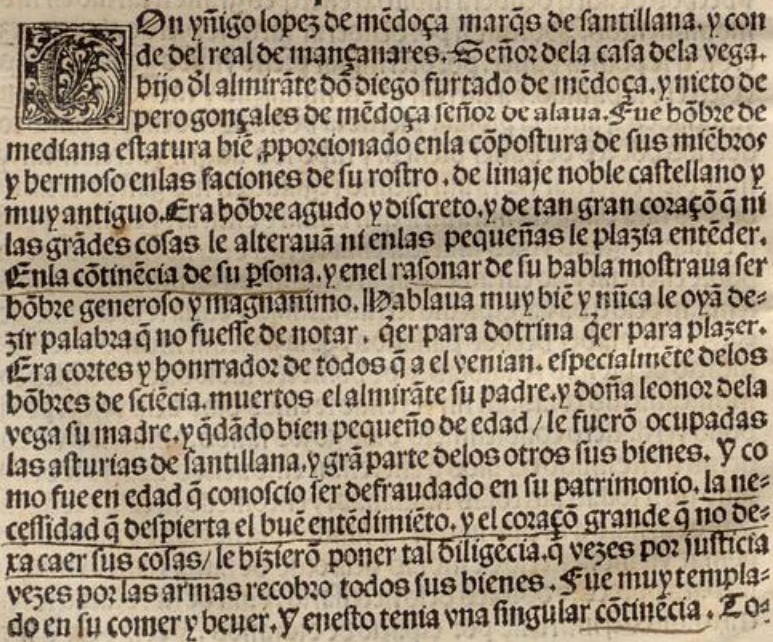 On yñigo lopez de mẽdoça marq̃s de ſantillana. y con
de del real de mançanares. Señor dela caſa dela vega.
hijo d̃l almirãte dõ diego furtado de mẽdoça. y nieto de
pero gonçales de mẽdoça ſeñor de alaua. Fue hõbre de
mediana eſtatura biẽ ꝓporcionado enla cõpoſtura de sus miẽbros
y hermoſo enlas faciones de ſu roſtro. de linaje noble caſtellano y
muy antiguo. Era hõbre agudo y diſcreto. y de tan gran coraçõ q̃ ni
las grãdes coſas le alterauã ni enlas pequeñas le plazia entẽder.
Enla cõtinẽcia de ſu ꝑſona. y enel raſonar de ſu habla moſtraua ſer
hõbre generoſo y magnanimo. Hablaua muy biẽ y nũca le oyã de⸗
zir palabra q̃ no fueſſe de notar. q̃er para dotrina q̃er para plazer.
Era cortes y honrrador de todos q̃ a el venian. eſpecialmẽte delos
hõbres de ſciẽcia. muertos el almirãte ſu padre. y doña leonor dela
vega ſu madre. y q̃dãdo bien pequeño de edad / le fuerõ ocupadas
las aſturias de ſantillana. y grã parte delos otros ſus bienes. Y co
mo fue en edad q̃ conoſcio ſer defraudado en ſu patrimonio. la ne⸗
ceſſidad q̃ deſpierta el buẽ entẽdimiẽto. y el coraçõ grande q̃ no de⸗
xa caer ſus coſas / le hizierõ poner tal diligẽcia. q̃ vezes por juſticia
vezes por las armas recobro todos ſus bienes. Fue muy templa⸗
do en ſu comer y beuer. Y eneſto tenia vna ſingular cõtinẽcia. To⸗